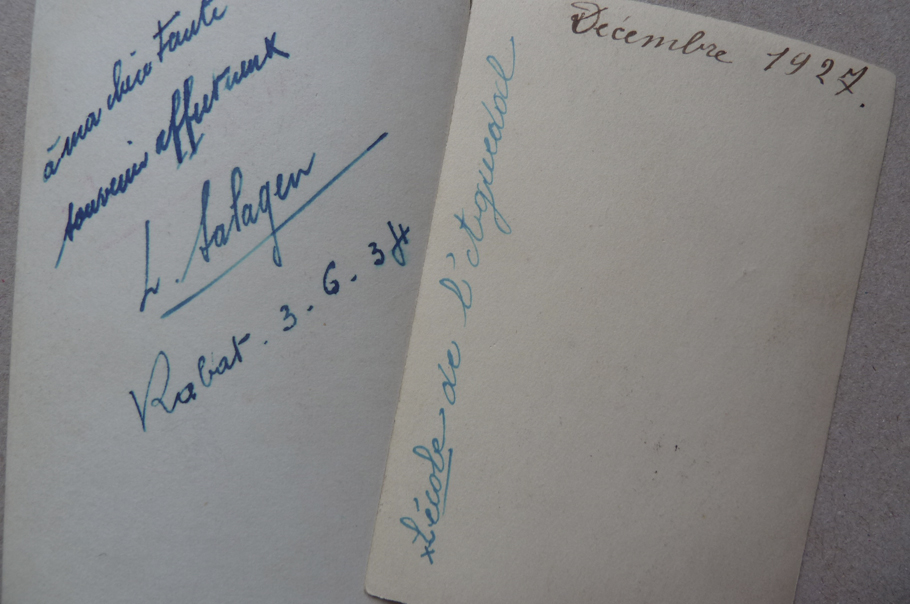 à ma chère Tante
souvenir affectueux
L. Salagen
Rabat. 3-6-34
Décembre 1927.
L'école de l'Aguedal